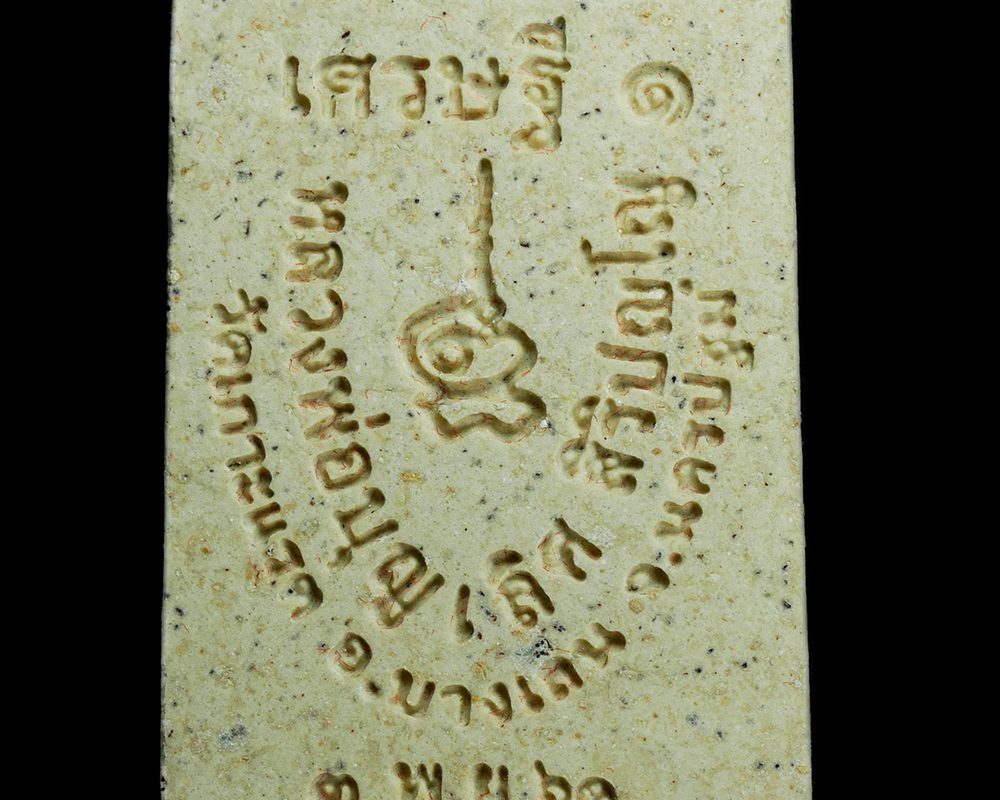 เศรษฐี ๑
หลวงพ่อบุญเลิศ สิริปุญโญ
วัดเกาะแรต อ.บางเลน จ.นครปฐม